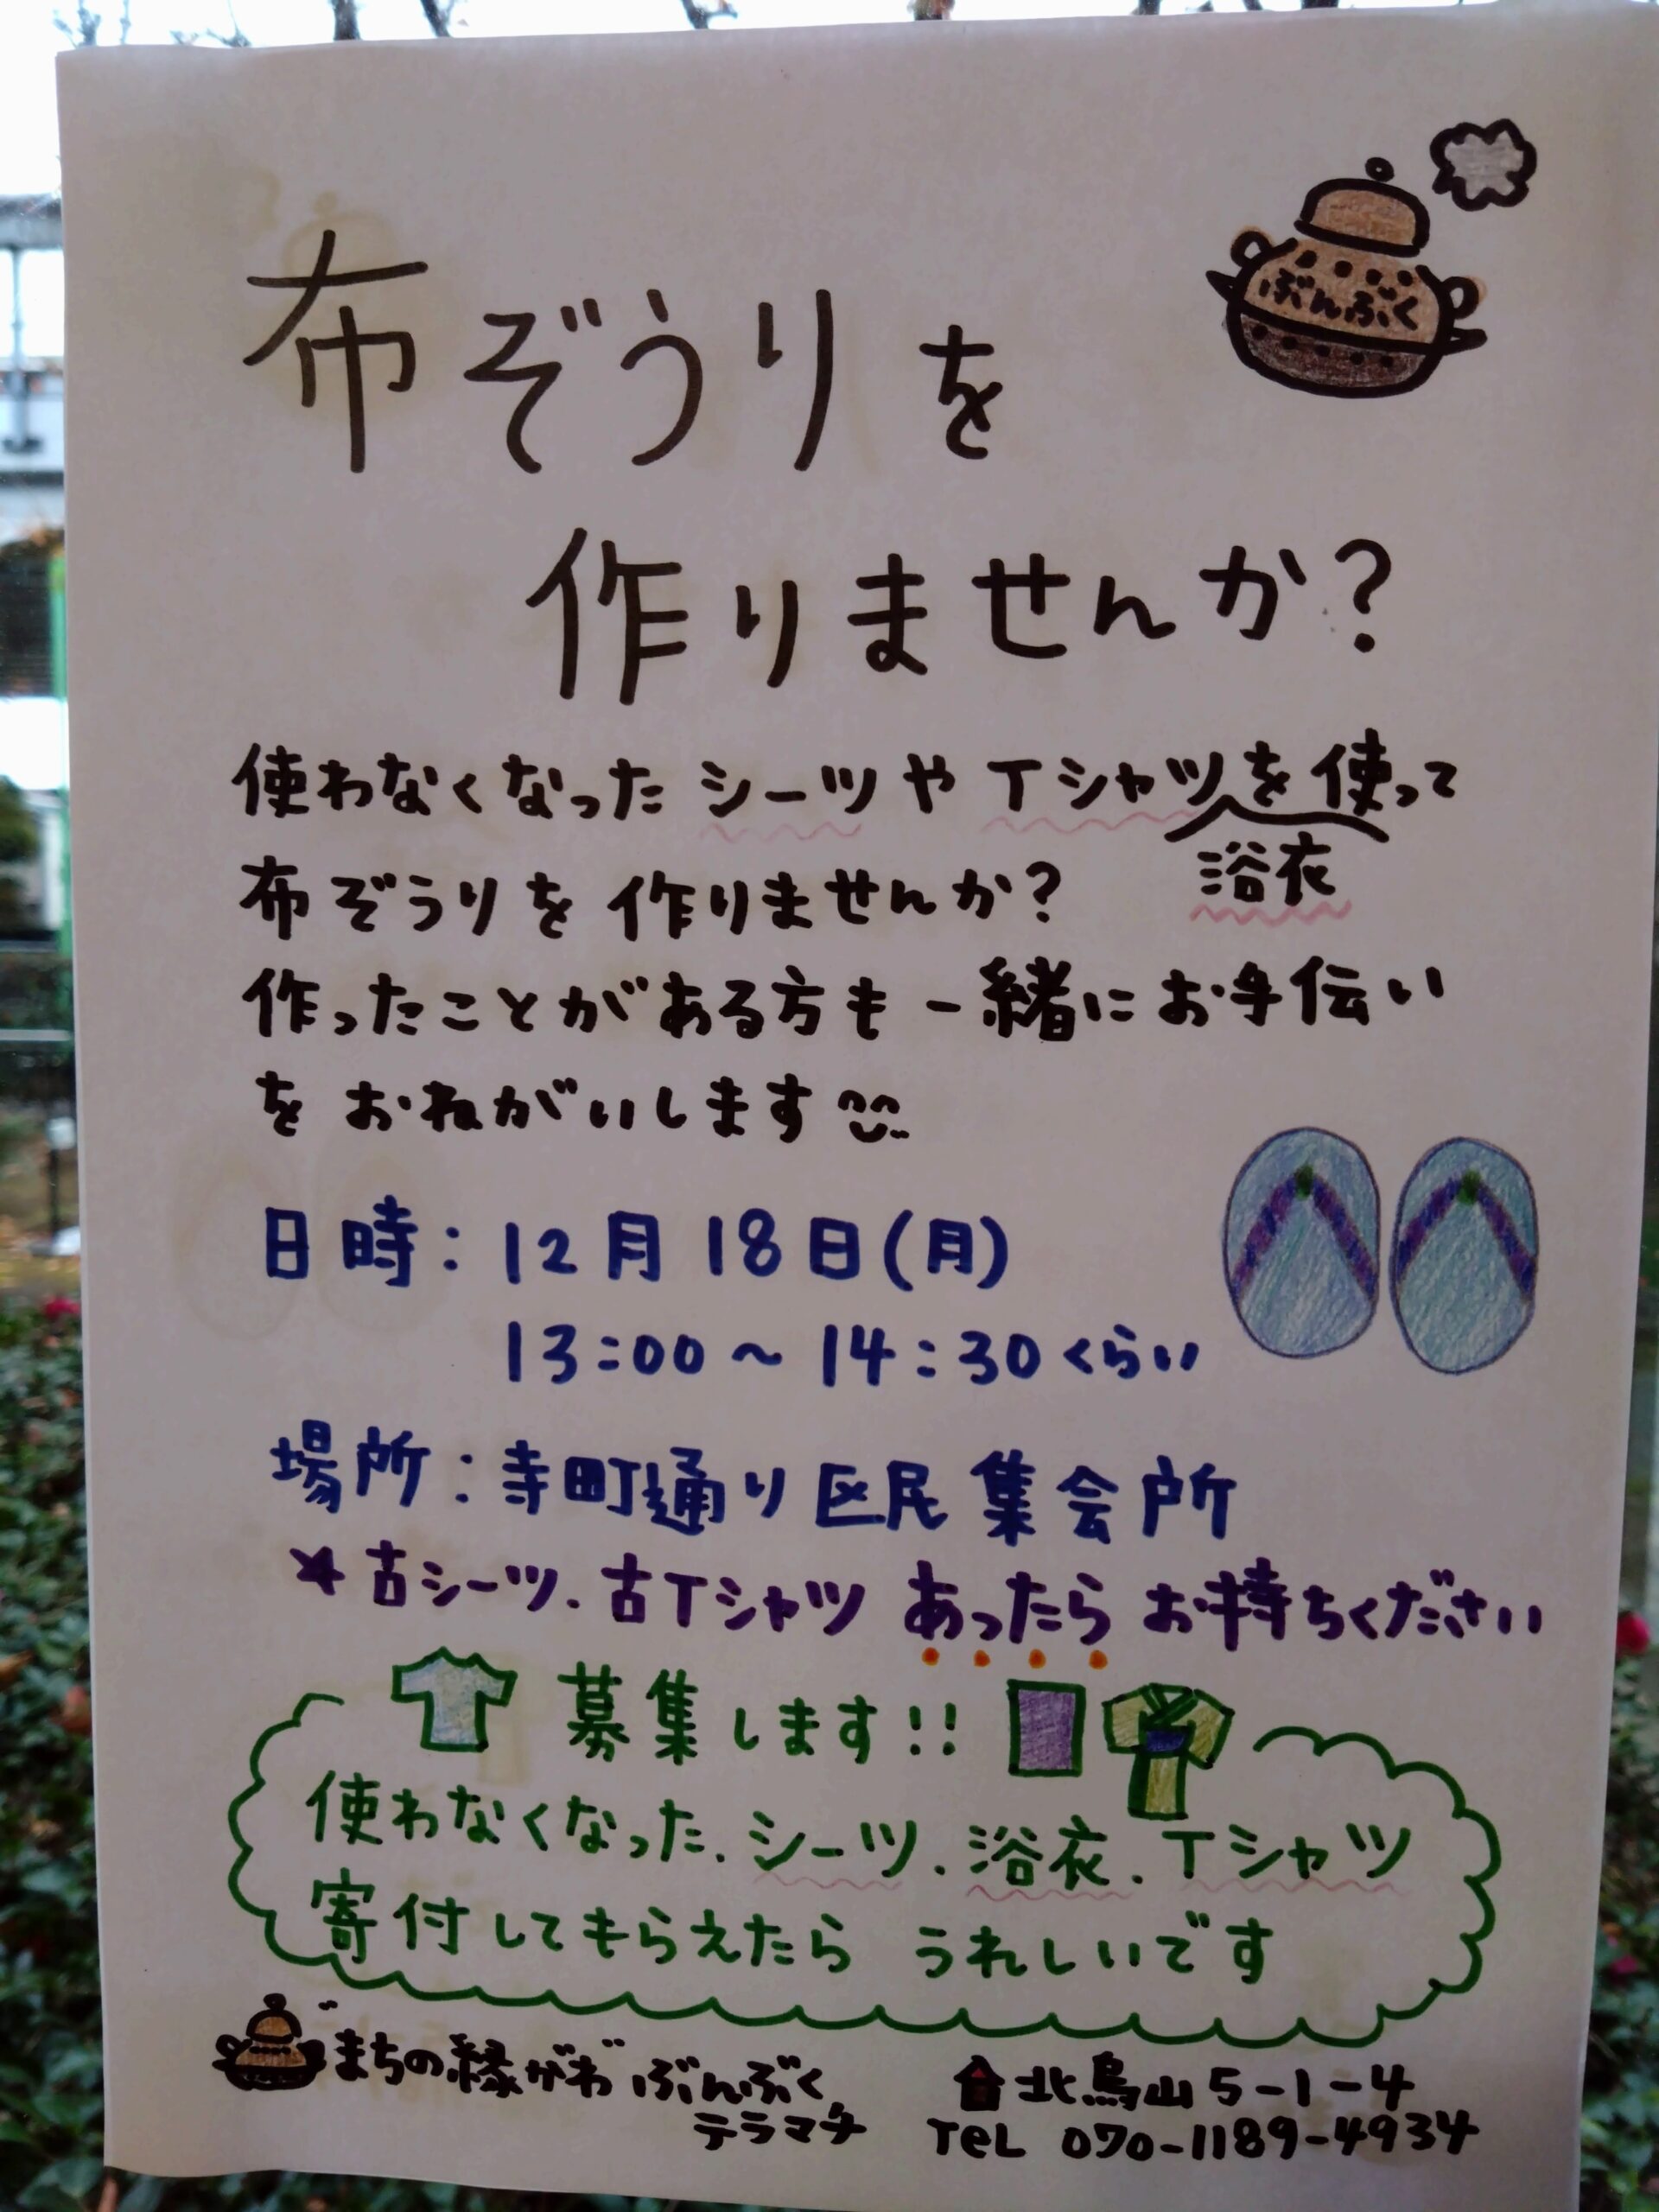 ぶんぶく
布ぞうりを
作りませんか?
使わなくなったシーツやTシャツを使って
浴衣
布ぞうりを作りませんか?
作ったことがある方も一緒にお手伝い
をおねがいします
日時:12月18日(月)
13:00～14:30くらい
場所:寺町通り区民集会所
★古シーツ.古Tシャツ あったらお持ちください
募集します!!
使わなくなった.シーツ.浴衣.Tシャツ
寄付してもらえたら うれしいです
まちの縁がわ ぶんぶく
テラマチ
北烏山5-1-4
TeL 070-1189-4934